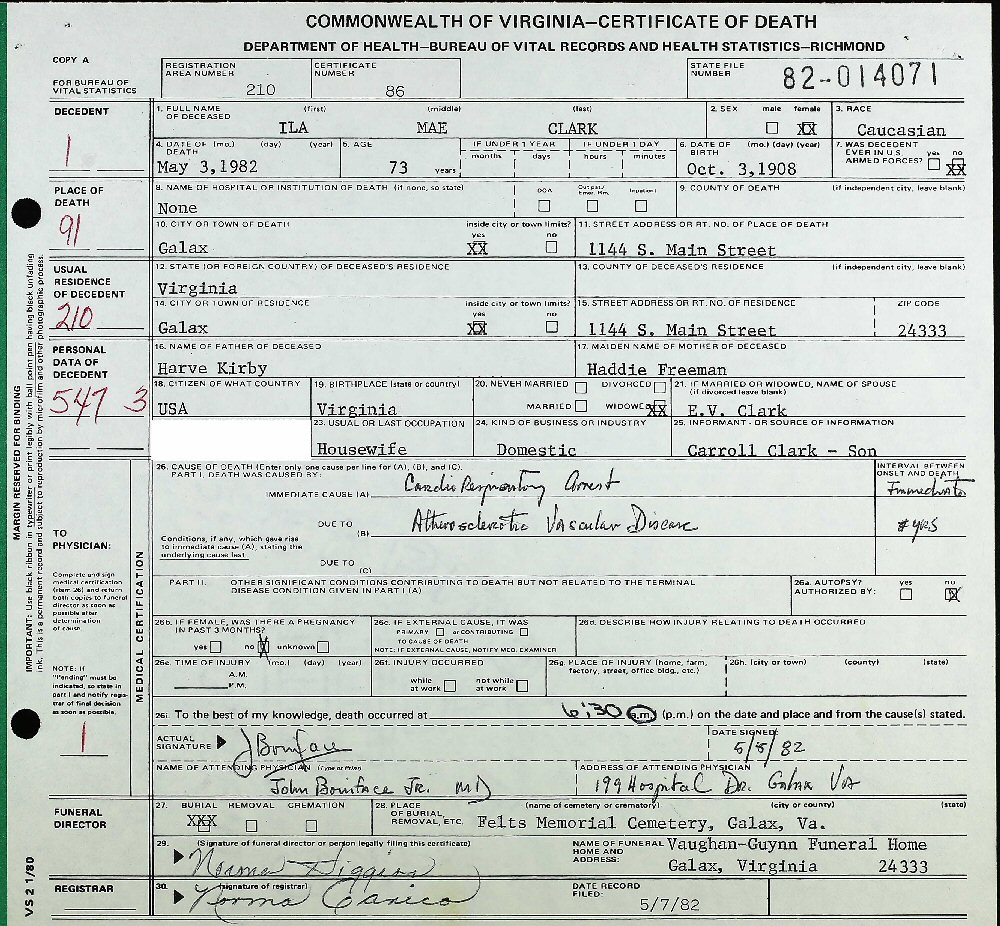 COMMONWEALTH OF VIRGINIA—CERTIFICATE OF DEATH
DEPARTMENT OF HEALTH—BUREAU OF VITAL RECORDS AND HEALTH STATISTICS—RICHMOND
COPY A
FOR BUREAU OF VITAL STATISTICS
REGISTRATION AREA NUMBER 210
CERTIFICATE NUMBER 86
STATE FILE NUMBER 82-014071
DECEDENT
1
1. FULL NAME OF DECEASED (first) (middle) (last)
ILA MAE CLARK
2. SEX male female XX
3. RACE
Caucasian
4. DATE OF DEATH (mo.) (day) (year)
May 3,1982
5. AGE
73 years
IF UNDER 1 YEAR
months days
IF UNDER 1 DAY
hours minutes
6. DATE OF BIRTH (mo.) (day) (year)
Oct. 3,1908
7. WAS DECEDENT EVER IN U.S. ARMED FORCES? yes no XX
PLACE OF DEATH
91
8. NAME OF HOSPITAL OR INSTITUTION OF DEATH (if none, so state)
None
DOA Outpat/Emer. Rm. Inpatient
9. COUNTY OF DEATH (if independent city, leave blank)
10. CITY OR TOWN OF DEATH
Galax
inside city or town limits?
yes no
XX
11. STREET ADDRESS OR RT. NO. OF PLACE OF DEATH
1144 S. Main Street
USUAL RESIDENCE OF DECEDENT
210
12. STATE (OR FOREIGN COUNTRY) OF DECEASED'S RESIDENCE
Virginia
13. COUNTY OF DECEASED'S RESIDENCE (if independent city, leave blank)
14. CITY OR TOWN OF RESIDENCE
Galax
inside city or town limits?
yes no
XX
15. STREET ADDRESS OR RT. NO. OF RESIDENCE
1144 S. Main Street
ZIP CODE
24333
PERSONAL DATA OF DECEDENT
547 3
16. NAME OF FATHER OF DECEASED
Harve Kirby
17. MAIDEN NAME OF MOTHER OF DECEASED
Haddie Freeman
18. CITIZEN OF WHAT COUNTRY
USA
19. BIRTHPLACE (state or country)
Virginia
20. NEVER MARRIED DIVORCED
MARRIED WIDOWED XX
21. IF MARRIED OR WIDOWED, NAME OF SPOUSE
(if divorced leave blank)
E.V. Clark
23. USUAL OR LAST OCCUPATION
Housewife
24. KIND OF BUSINESS OR INDUSTRY
Domestic
25. INFORMANT - OR SOURCE OF INFORMATION
Carroll Clark - Son
26. CAUSE OF DEATH (Enter only one cause per line for (A), (B), and (C).
PART I. DEATH WAS CAUSED BY:
IMMEDIATE CAUSE (A) Cardio Respiratory Arrest
INTERVAL BETWEEN ONSET AND DEATH
Immediate
DUE TO (B) Atherosclerotic Vascular Disease
yrs
Conditions, if any, which gave rise to immediate cause (A), stating the underlying cause last
DUE TO (C)
TO PHYSICIAN:
Complete and sign medical certification (item 26) and return both copies to funeral director as soon as possible after determination of cause.
NOTE: If "Pending" must be indicated, so state in part I and notify registrar of final decision as soon as possible.
1
MEDICAL CERTIFICATION
PART II. OTHER SIGNIFICANT CONDITIONS CONTRIBUTING TO DEATH BUT NOT RELATED TO THE TERMINAL
DISEASE CONDITION GIVEN IN PART I (A)
26a. AUTOPSY? AUTHORIZED BY: yes no X
26b. IF FEMALE, WAS THERE A PREGNANCY IN PAST 3 MONTHS?
yes no X unknown
26c. IF EXTERNAL CAUSE, IT WAS
PRIMARY or CONTRIBUTING
TO CAUSE OF DEATH
NOTE: IF EXTERNAL CAUSE, NOTIFY MED. EXAMINER
26d. DESCRIBE HOW INJURY RELATING TO DEATH OCCURRED
26e. TIME OF INJURY (mo.) (day) (year)
A.M.
P.M.
26f. INJURY OCCURRED
while at work not while at work
26g. PLACE OF INJURY (home, farm, factory, street, office bldg., etc.)
26h. (city or town) (county) (state)
26i. To the best of my knowledge, death occurred at 6:30 (a.m.) (p.m.) on the date and place and from the cause(s) stated.
ACTUAL SIGNATURE J Boniface
DATE SIGNED:
5/5/82
NAME OF ATTENDING PHYSICIAN (Type or Print)
John Boniface Jr. MD
ADDRESS OF ATTENDING PHYSICIAN
199 Hospital Dr. Galax VA
FUNERAL DIRECTOR
27. BURIAL REMOVAL CREMATION
XXX
28. PLACE OF BURIAL, REMOVAL, ETC. (name of cemetery or crematory) (city or county) (state)
Felts Memorial Cemetery, Galax, Va.
29. (Signature of funeral director or person legally filing this certificate)
Norma Higgins
NAME OF FUNERAL HOME AND ADDRESS:
Vaughan-Guynn Funeral Home
Galax, Virginia 24333
REGISTRAR
30. (signature of registrar)
Norma Carico
DATE RECORD FILED:
5/7/82
VS 2 1/80
MARGIN RESERVED FOR BINDING
IMPORTANT: Use black ribbon in typewriter or print legibly with ball point pen having black unfading
ink. This is a permanent record and subject to reproduction by microfilm and other photographic process.